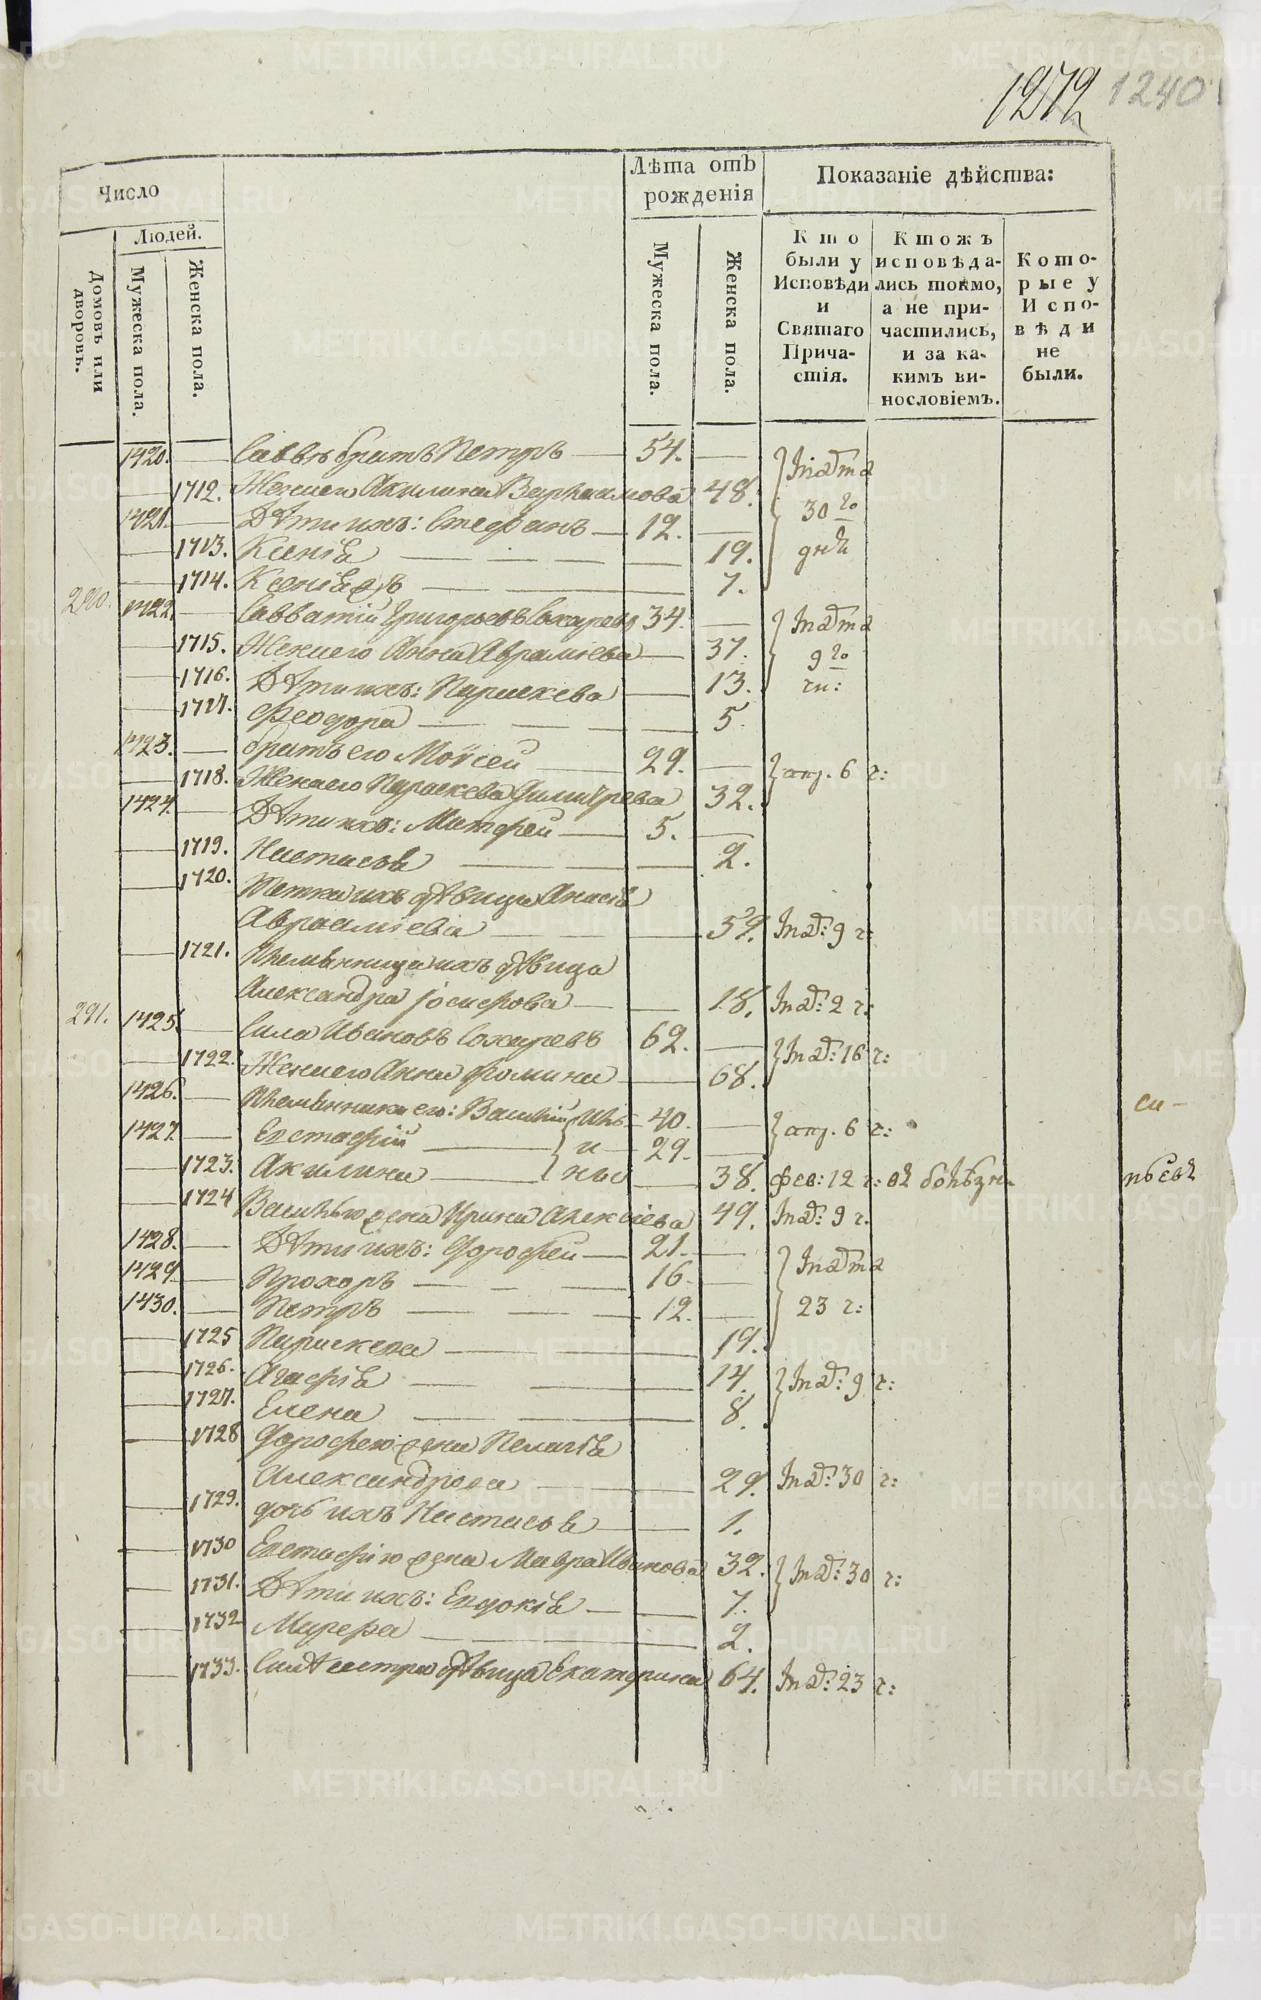 1272 1240
Число
Лѣта отъ рожденія
Показаніе дѣйства:
Людей.
Домовъ или дворовъ.
Мужеска пола.
Женска пола.
Мужеска пола.
Женска пола.
Кто были у Исповѣди и Святаго Причастія.
Ктожъ исповѣдались токмо, а не причастились, и за какимъ винословіемъ.
Которые у Исповѣди не были.
1420. Саввѣ братъ Петръ 54. Марта
1712. Жена его Акилина Варлаамова 48. 30 го
1421. Дѣти ихъ: Стефанъ 12. дня
1713. Ксенія 19.
1714. Ксенія 7.
290. 1422. Савватій Григорьевъ Сохаревъ 34. Марта
1715. Жена его Анна Авраміева 37. 9 го
1716. Дѣти ихъ: Параскева 13. чи:
1717. Феодора 5.
1423. братъ его Моѵсей 29. апр. 6 ч:
1718. Жена его Параскева Димитріева 32.
1424. Дѣти ихъ: Матфей 5.
1719. Настасья 2.
1720. Тетка ихъ дѣвица
Авраамиева 52. Мар: 9 ч:
1721. Племянница ихъ дѣвица
Александра Іосифова 18. Мар: 2 ч:
291. 1425. Сила Ивановъ Сохаревъ 62. Мар: 16 ч:
1722. Жена его Анна Фомина 68.
1426. Племянники его: Василій Ива- 40. апр. 6 ч: си-
1427. Евстафій н 29.
1723. Акилина ны 38. фев: 12 ч: въ болѣзни
1724 Васильева жена Ирина Алексіева 49. Мар: 9 ч.
1428. Дѣти ихъ: Дорофей 21. Марта
1429 Прохоръ 16.
1430. Петръ 12. 23 ч:
1725 Параскева 19.
1726. Агафія 14. Мар: 9 ч:
1727. Елена 8.
1728 Дорофею жена Пелагія
Александрова 29. Мар: 30 ч:
1729. дочь ихъ Настасья 1.
1730 Евстафію жена Мавра Иванова 32. Мар: 30 ч:
1731. Дѣти ихъ: Евдокія 7.
1732 2.
1733. Силѣ сестра дѣвица Екатерина 64. Мар: 23 ч:
METRIKI.GASO-URAL.RU